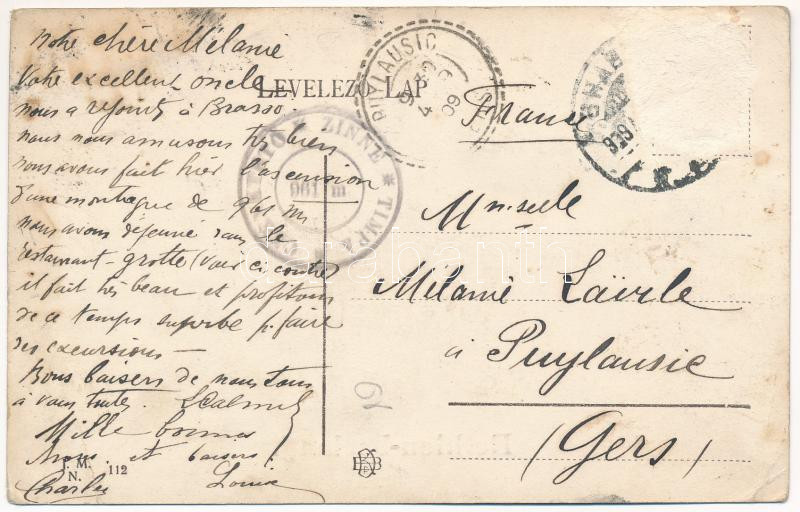 Notre chère Mélanie
Votre excellent oncle
nous a rejoint à Brasso.
nous nous amusons très bien
nous avons fait hier l'ascension
d'une montagne de 961 m
nous avons déjeuné dans le
restaurant grotte (voir ci contre)
il fait très beau et profitons
de ce temps superbe p. faire
des excursions —
Bons baisers de nous tous
à vous toutes.
Mille bonnes
et baisers
Charles Louise
J. M.
N. 112
LEVELEZŐ-LAP
PUYLAUSIC
09
ZINNE * TIMPA
961 m
France
919
Melle
Mélanie Lairle
à Puylausic
(Gers)
19
darabanth